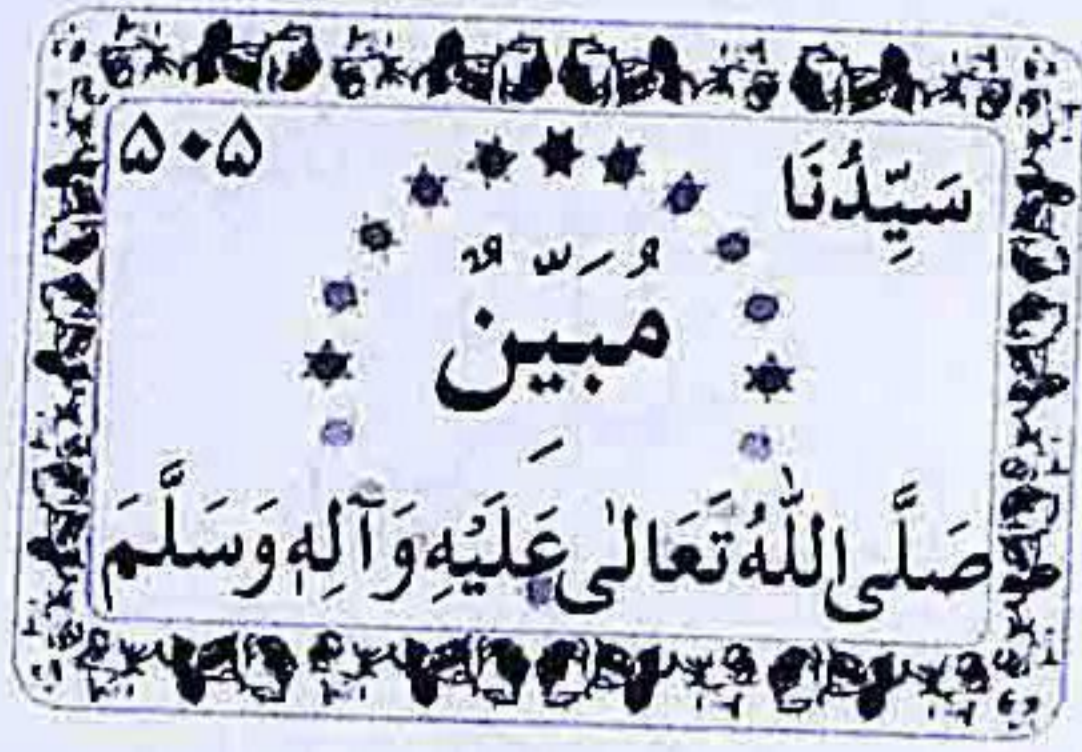 سَيِّدُنَا
۵۰۵
مُبَيِّنٌ
صَلَّى اللّٰهُ تَعَالٰى عَلَيْهِ وَآلِهٖ وَسَلَّمَ